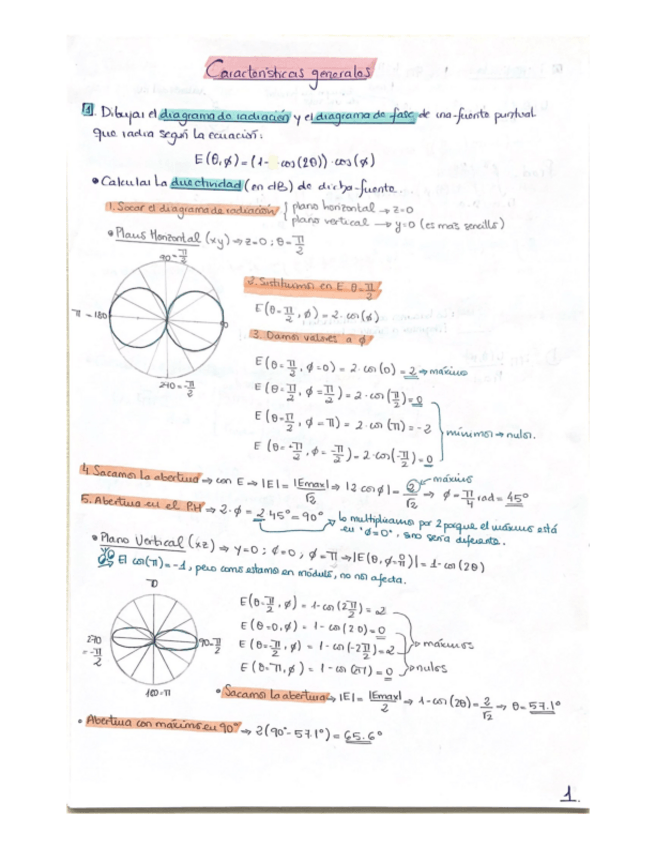 Características generales
1. Dibujar el diagrama de radiación y el diagrama de fase de una fuente puntual
que radia según la ecuación:
E(θ,ϕ)=(1- cos(2θ))·cos(ϕ)
• Calcular la directividad (en dB) de dicha fuente.
1. Sacar el diagrama de radiación { plano horizontal → z=0
plano vertical → y=0 (es mas sencillo)
• Plano Horizontal (xy) → z=0; θ=π/2
90=π/2
π=180
0
270=-π/2
2. Sustituimos en E θ=π/2
E(θ=π/2, ϕ)=2·cos(ϕ)
3. Damos valores a ϕ
E(θ=π/2, ϕ=0)=2·cos(0)=2 → máximo
E(θ=π/2, ϕ=π/2)=2·cos(π/2)=0
E(θ=π/2, ϕ=π)=2·cos(π)=-2
E(θ=+π/2, ϕ=-π/2)=2·cos(-π/2)=0
mínimos → nulos.
4 Sacamos la abertura → con E → |E|=|Emax|/√2 → |2 cosϕ|=2/√2 → ϕ=π/4 rad=45°
máximo
5. Abertura en el P.H → 2·ϕ=2·45°=90° → lo multiplicamos por 2 porque el máximo está
en "ϕ=0", sino sería diferente.
• Plano Vertical (xz) → y=0; ϕ=0, ϕ=π → |E(θ,ϕ=0/π)|=1-cos(2θ)
El cos(π)=-1, pero como estamos en módulo, no nos afecta.
0
270=-π/2
90=π/2
180=π
E(θ=π/2, ϕ)=1-cos(2π/2)=2
E(θ=0,ϕ)=1-cos(2·0)=0
E(θ=-π/2,ϕ)=1-cos(-2π/2)=2
E(θ=π,ϕ)=1-cos(2π)=0
máximos
nulos
• Sacamos la abertura → |E|=|Emax|/2 → 1-cos(2θ)=2/√2 → θ=57.1°
• Abertura con máximo en 90° → 2(90°-57.1°)=65.6°
1.